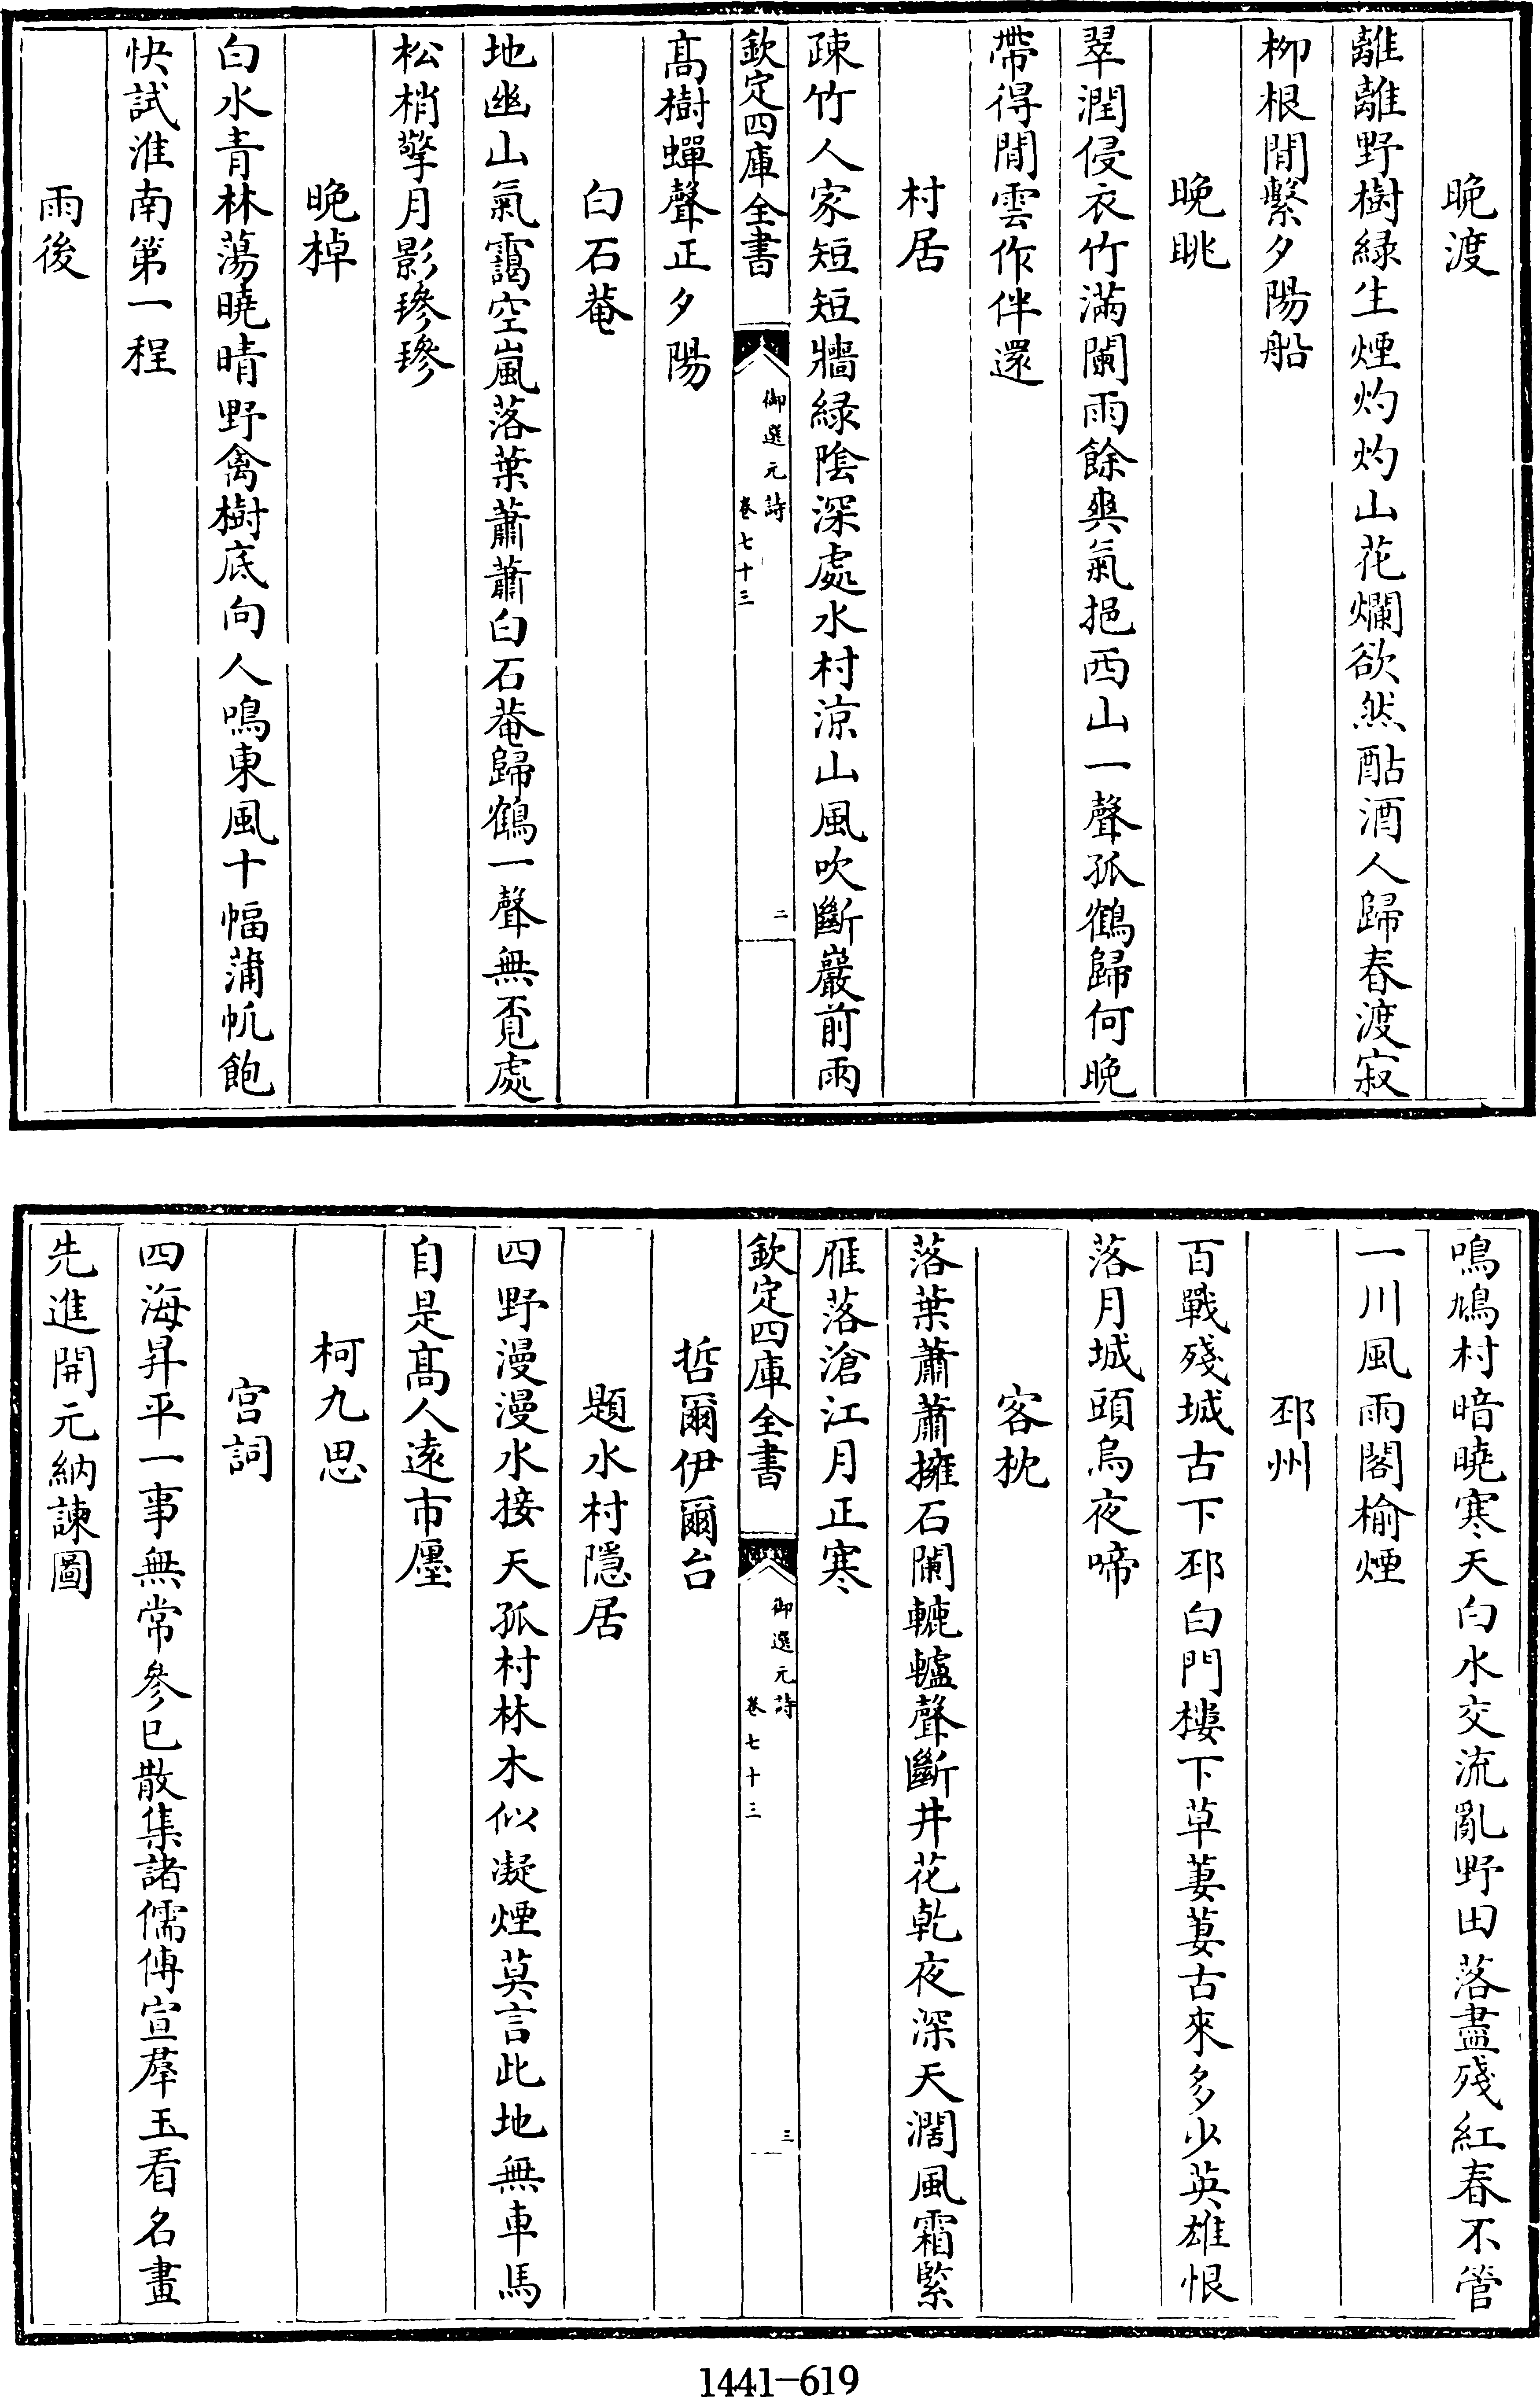 晚渡
離離野樹緑生煙灼灼山花爛欲然酤酒人歸春渡寂
栁根閒繫夕陽船
晚眺
翠潤侵衣竹滿闌雨餘爽氣挹西山一聲孤鶴歸何晚
帶得閒雲作伴還
村居
疎竹人家短短牆緑陰深處水村涼山風吹斷巖前雨
欽定四庫全書
御選元詩
卷七十三
二
髙樹蟬聲正夕陽
白石菴
地幽山氣靄空嵐落葉蕭蕭白石菴歸鶴一聲無覔處
松梢擎月影毿毿
晚棹
白水青林蕩曉晴野禽樹底向人鳴東風十幅蒲帆飽
快試淮南第一程
雨後
鳴鳩村暗曉寒天白水交流亂野田落盡殘紅春不管
一川風雨閣榆煙
邳州
百戰殘城古下邳白門樓下草萋萋古來多少英雄恨
落月城頭烏夜啼
客枕
落葉蕭蕭擁石闌轆轤聲斷井花乾夜深天濶風霜緊
雁落滄江月正寒
欽定四庫全書
御選元詩
卷七十三
三
哲爾伊爾台
題水村隱居
四野漫漫水接天孤村林木似凝煙莫言此地無車馬
自是髙人遠市廛
柯九思
宫詞
四海昇平一事無常參已散集諸儒傳宣羣玉看名畫
先進開元納諫圖
1441-619